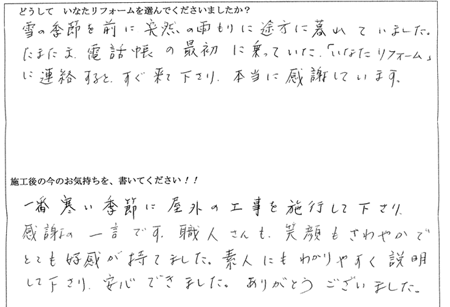 どうして いなたリフォームを選んでくださいましたか?
雪の季節を前に突然の雨もりに途方に暮れていました。
たまたま、電話帳の最初に乗っていた「いなたリフォーム」
に連絡すると、すぐ来て下さり、本当に感謝しています。
施工後の今のお気持ちを、書いてください！！
一番寒い季節に屋外の工事を施行して下さり、
感謝の一言です。職人さんも、笑顔もさわやかで
とても好感が持てました。素人にもわかりやすく説明
して下さり、安心できました。ありがとうございました。